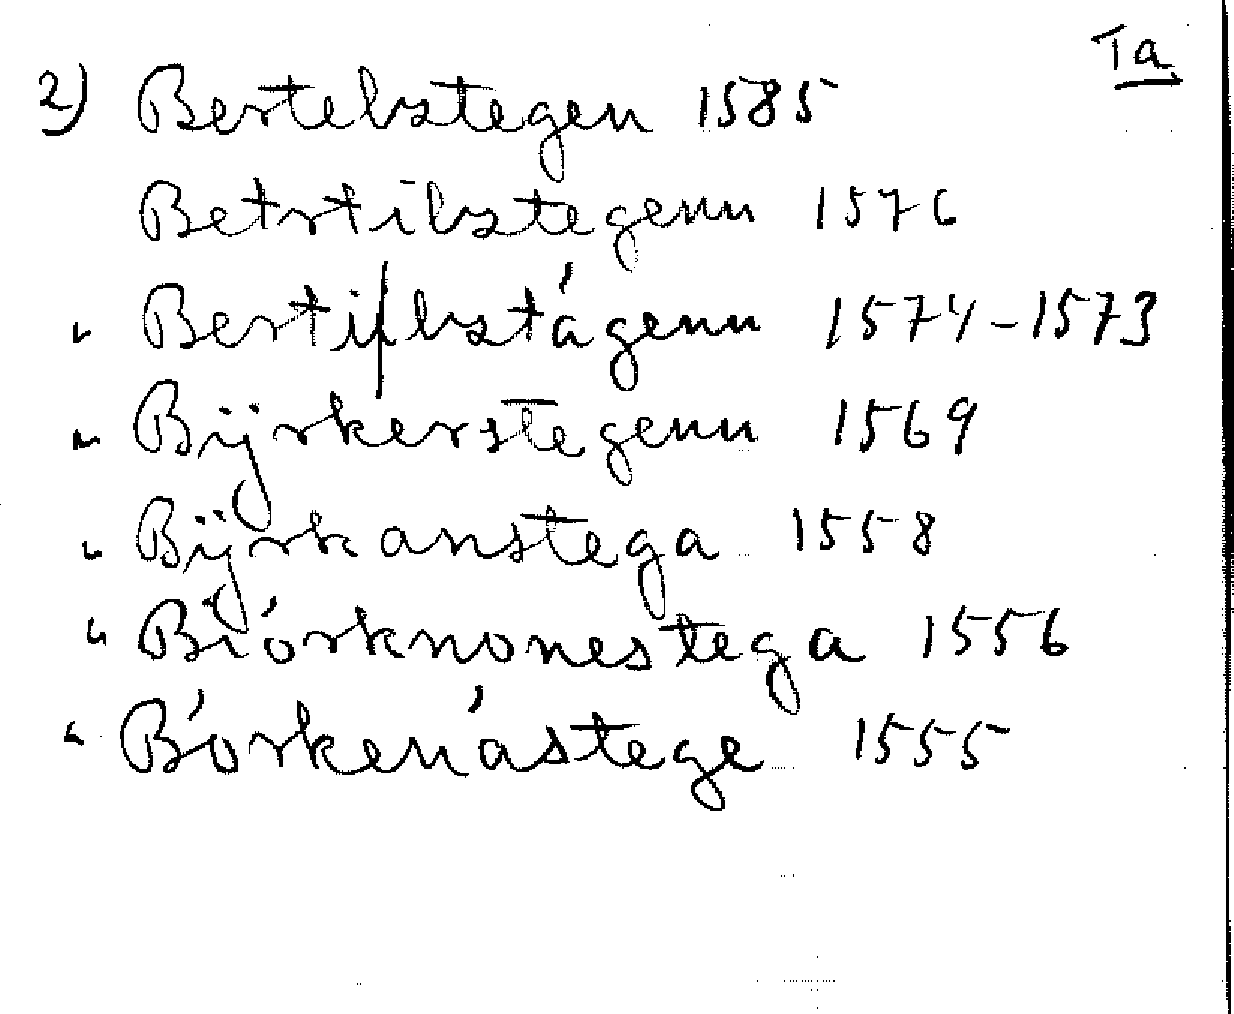 Ta
2) Bertelstegen 1585
Betrtilstegenn 1576
" Bertilstágenn 1574-1573
" Bijrkerstegenn 1569
" Bijrkanstega 1558
" Biórknonestega 1556
" Bórkenástege 1555